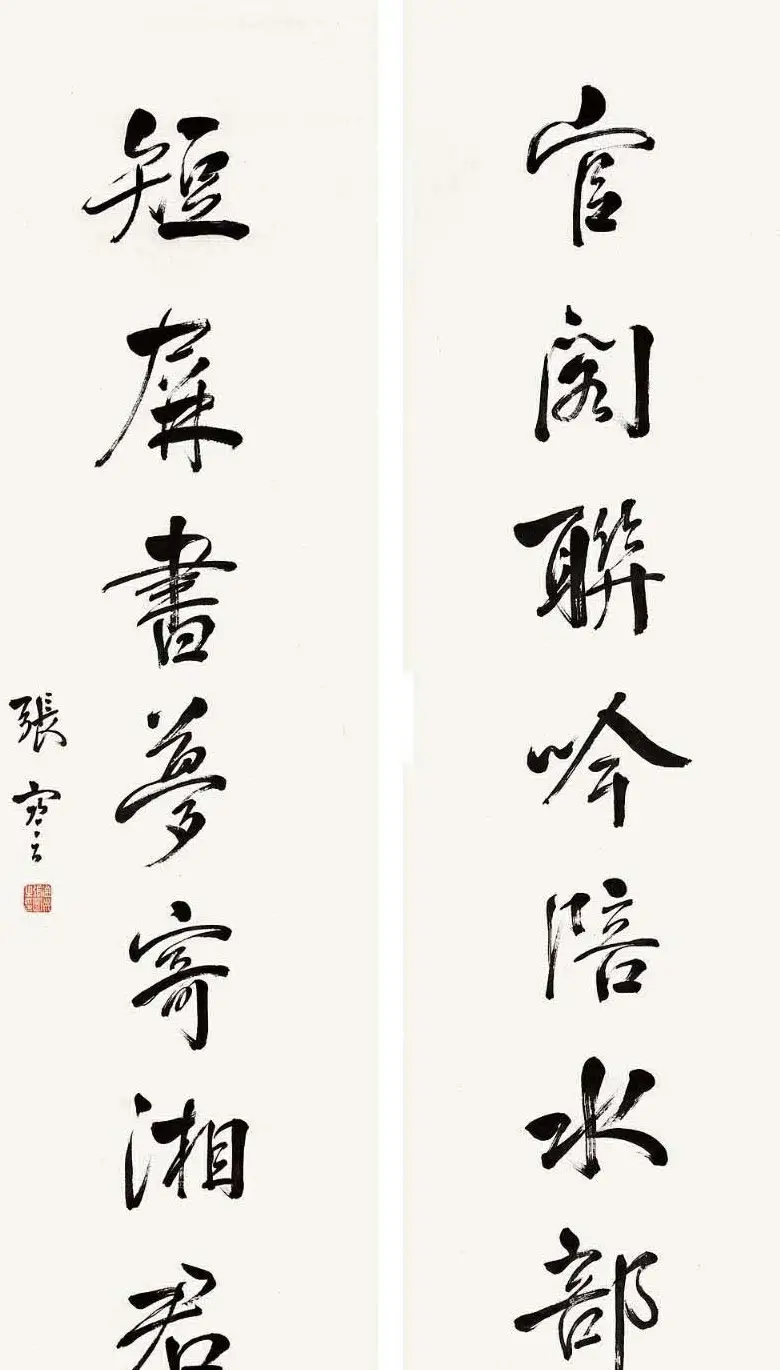 官閣聯吟陪水部
短屏書夢寄湘君
張寒雲